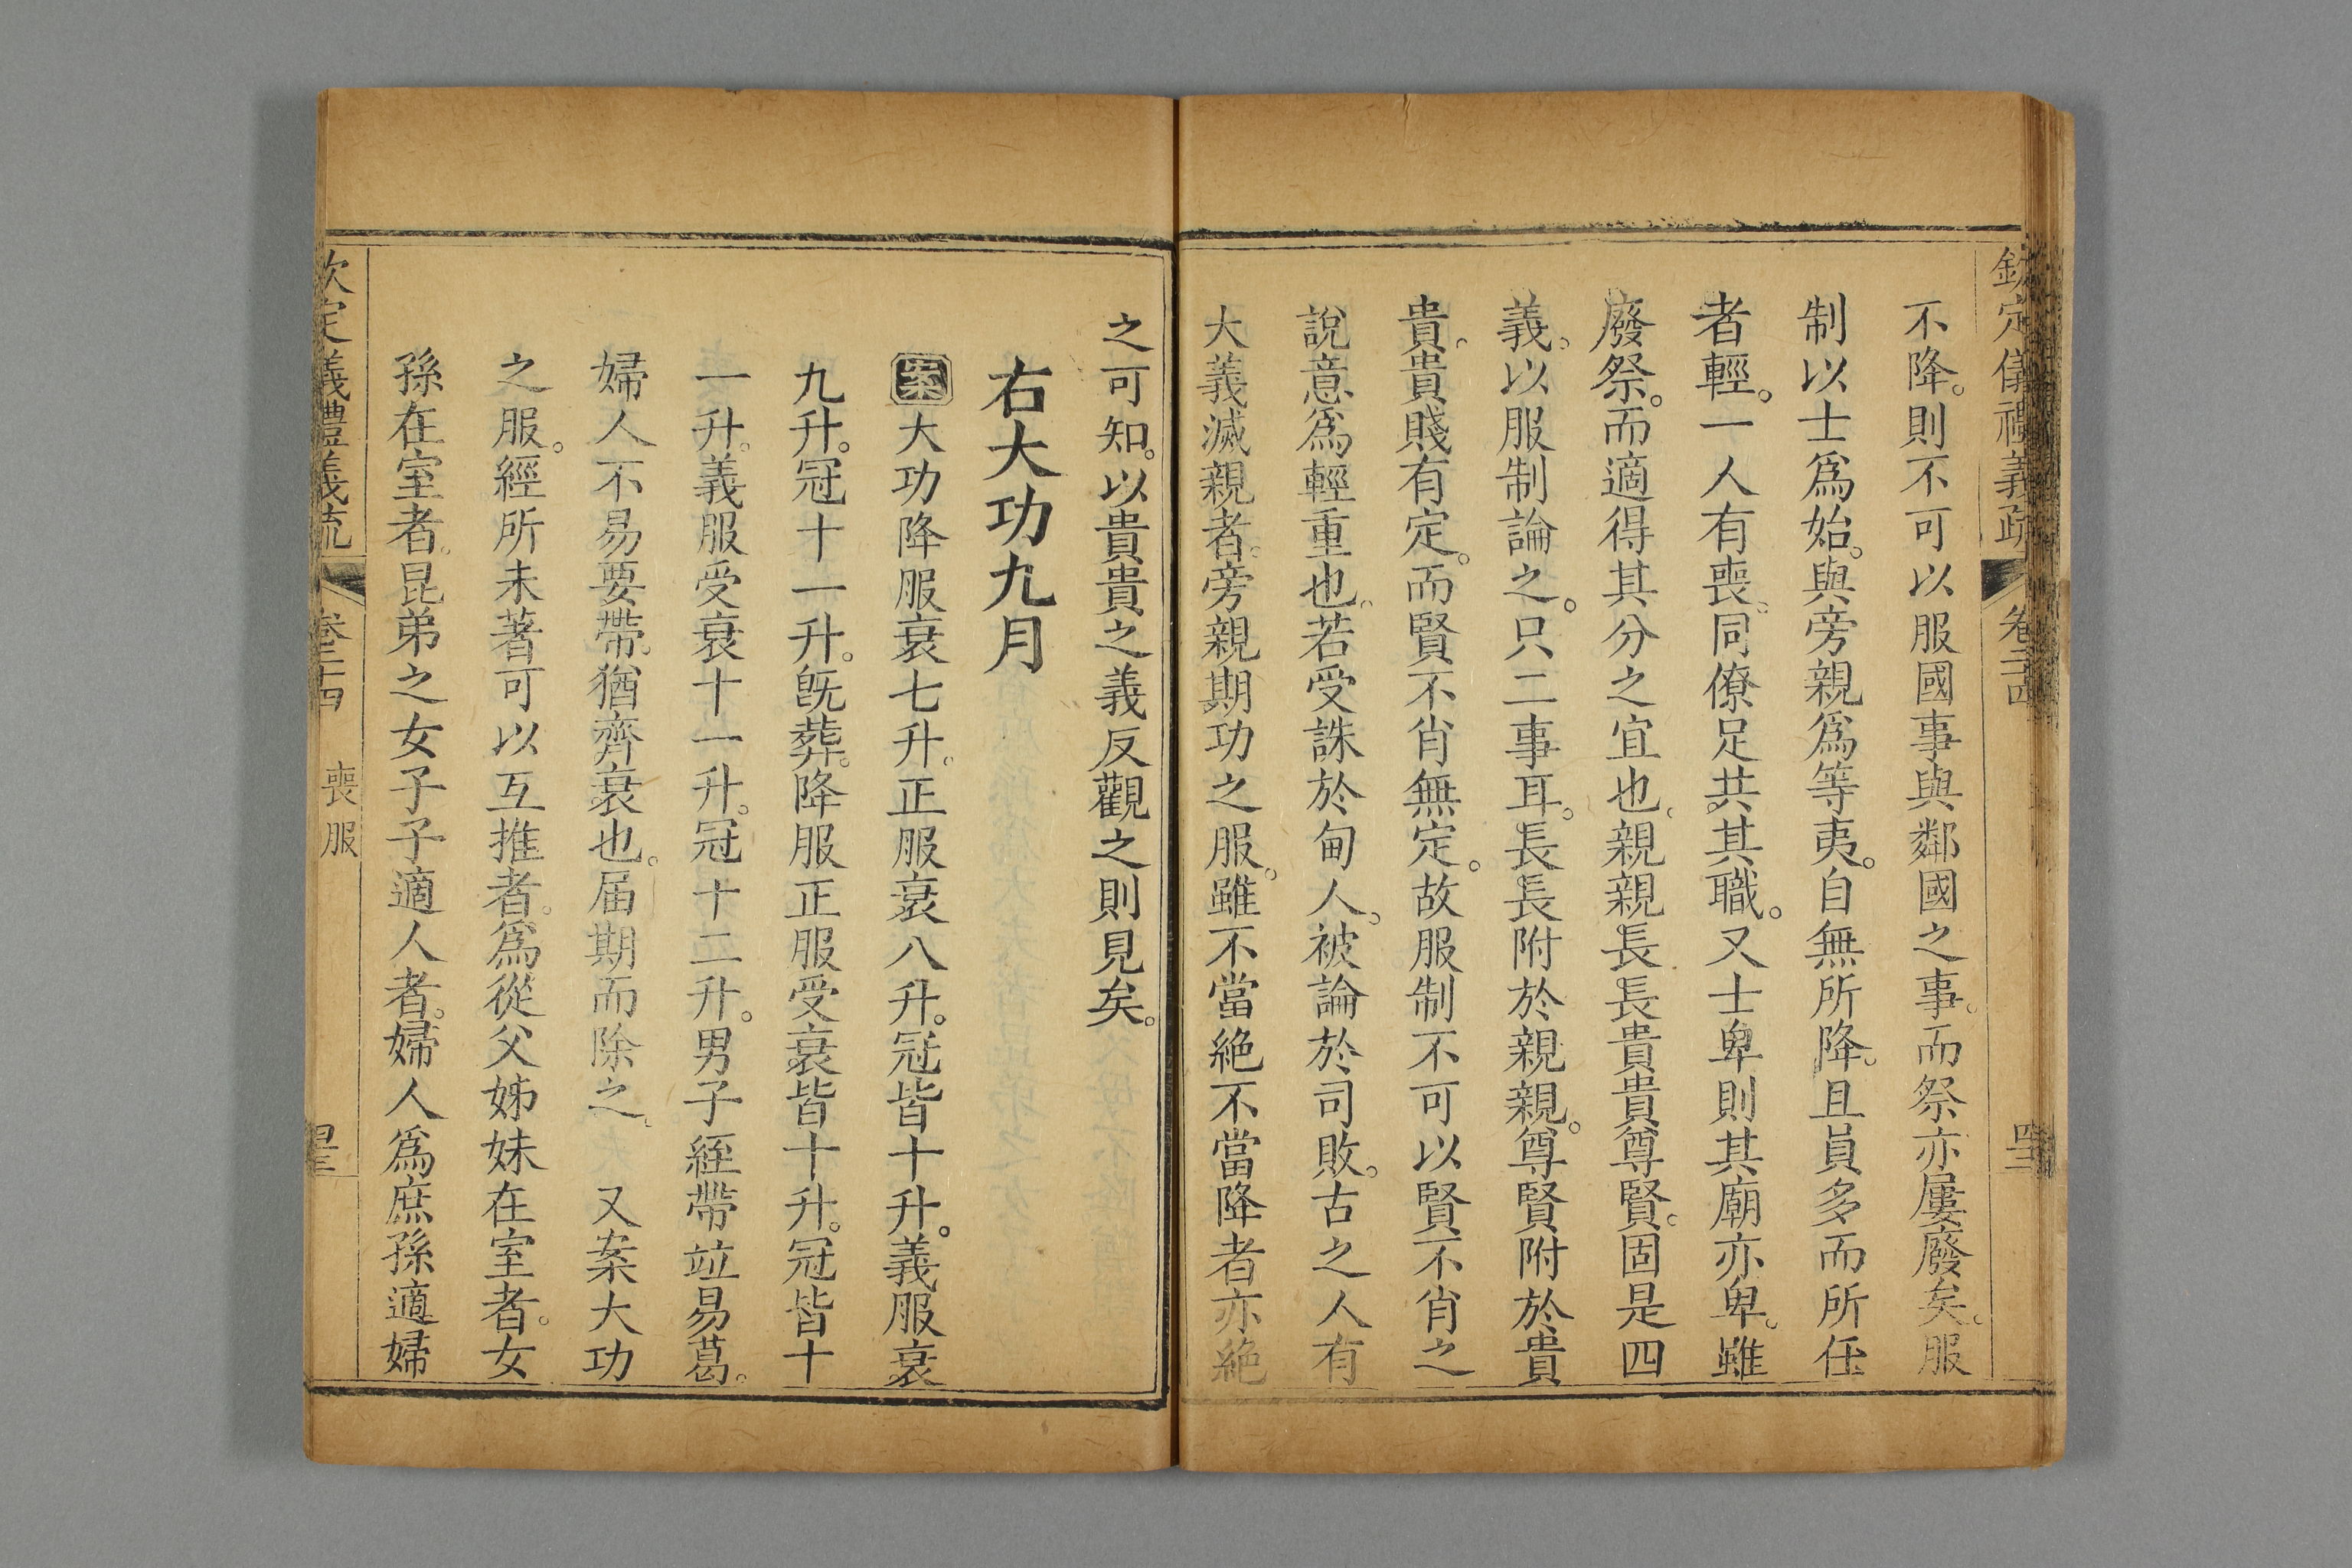 欽定儀禮義疏 卷二十四 四十二
不降。則不可以服國事與鄰國之事。而祭亦屢廢矣。服
制以士爲始。與旁親爲等夷。自無所降。且員多而所任
者輕。一人有喪。同僚足共其職。又士卑則其廟亦卑。雖
廢祭。而適得其分之宜也。親親長長貴貴尊賢。固是四
義。以服制論之。只二事耳。長長附於親親。尊賢附於貴
貴。貴賤有定。而賢不肖無定。故服制不可以賢不肖之
說意爲輕重也。若受誅於甸人。被論於司敗。古之人有
大義滅親者。旁親期功之服。雖不當絶不當降者亦絶
之可知。以貴貴之義反觀之則見矣。
右大功九月
案大功降服衰七升。正服衰八升。冠皆十升。義服衰
九升。冠十一升。旣葬。降服正服受衰皆十升。冠皆十
一升。義服受衰十一升。冠十二升。男子絰帶竝易葛。
婦人不易要帶。猶齊衰也。届期而除之。 又案大功
之服。經所未著可以互推者。爲從父姊妹在室者。女
孫在室者。昆弟之女子子適人者。婦人爲庶孫適婦
欽定儀禮義疏 卷二十四 喪服